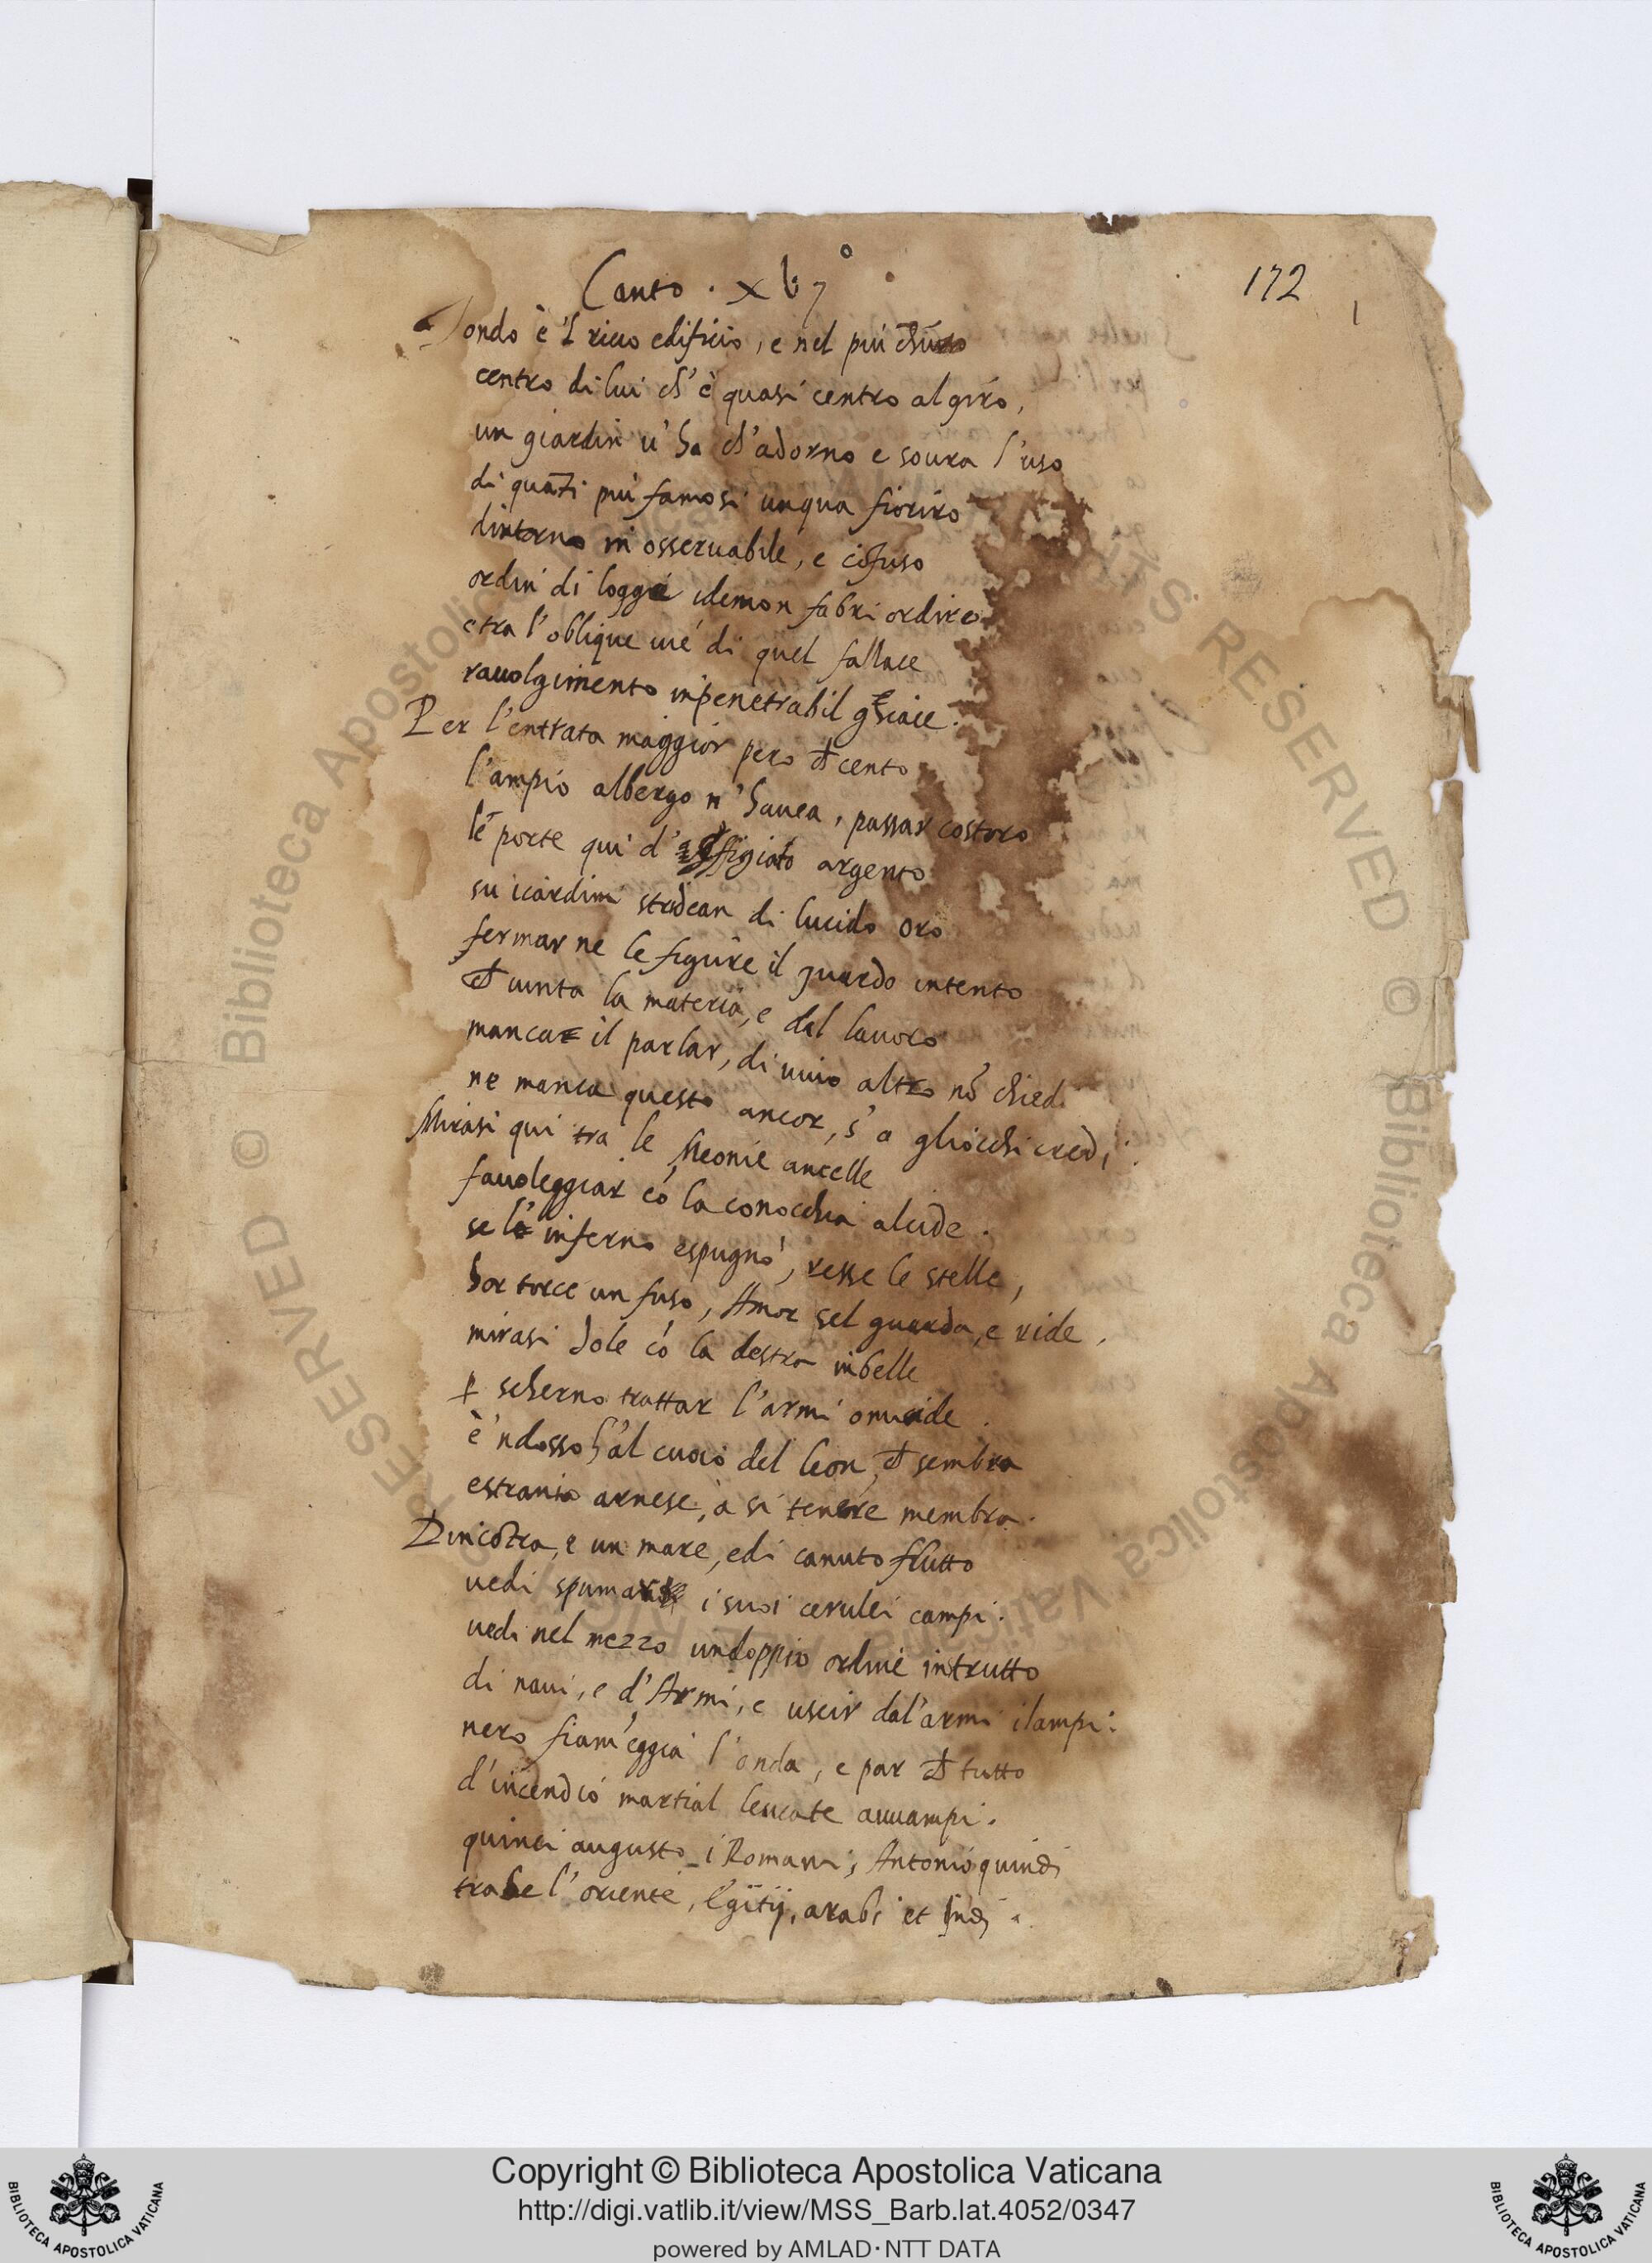 Canto . xvj°
172
1
Tondo è 'l ricco edificio, e nel più chiuso
centro di lui ch'è quasi centro al giro,
un giardin u' ha ch'adorno e soura l'uso
di quāti più famosi unqua fioriro
dintorno inosseruabile, e cōfuso
ordin di loggie i demon fabri ordiro
e tra l'oblique uie di quel fallace
rauolgimento inpenetrabil ghiace.
Per l'entrata maggior pero ch cento
l'ampio albergo n'hauea, passar costoro
le porte qui d'effigiato argento
su i cardini stridean di lucido oro
fermar ne le figure il guardo intento
ch uinta la materia, e dal lauoro
manca il parlar, di uiuo altro nō chiedi
ne manca questo ancor, s'a gliocchi credi.
Mirasi qui tra le Meonie ancelle
fauoleggiar cō la conocchia alcide.
se l'inferno espugnò, resse le stelle,
hor torce un fuso, Amor sel guarda, e ride.
mirasi Iole cō la destra inbelle
p scherno trattar l'armi omicide.
e 'ndosso h'al cuoio del leon, ch sembra
estranio arnese, a si tenere membra.
Dincōtra, e un mare, e di canuto flutto
uedi spumar i suoi cerulei campi.
uedi nel mezzo un doppio ordine instrutto
di naui, e d'Armi, e uscir dal'armi i lampi:
nero fiam'eggia l'onda, e par ch tutto
d'incendio martial leucate auuampi.
quinci augusto i Romani, Antonio quindi
trahe l'oriente, Egitij, arabi et Indi.
RESERVED © Biblioteca Apostolica Vaticana
RIGHTS RESERVED © Biblioteca Apostolica Vaticana
Copyright © Biblioteca Apostolica Vaticana
http://digi.vatlib.it/view/MSS_Barb.lat.4052/0347
powered by AMLAD·NTT DATA
BIBLIOTECA APOSTOLICA VATICANA
BIBLIOTECA APOSTOLICA VATICANA